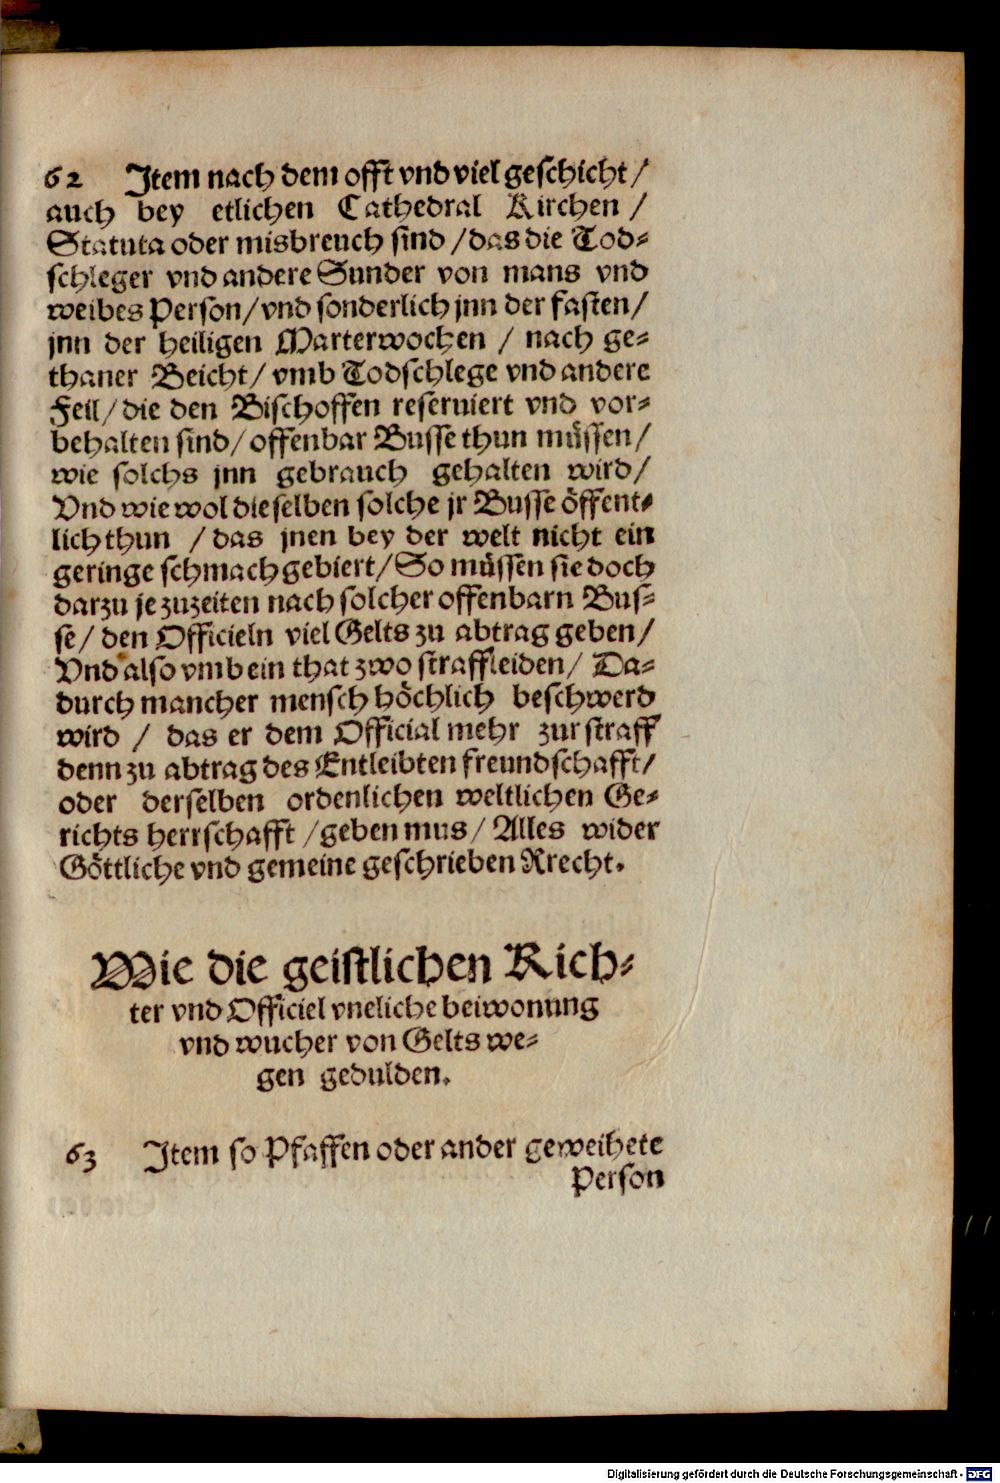 62 Item nach dem offt vnd viel geschicht /
auch bey etlichen Cathedral Kirchen /
Statuta oder misbreuch sind / das die Tod⸗
schleger vnd andere Sunder von mans vnd
weibes Person / vnd sonderlich jnn der fasten /
jnn der heiligen Marterwochen / nach ge⸗
thaner Beicht / vmb Todschlege vnd andere
Feil / die den Bischoffen reseruiert vnd vor⸗
behalten sind / offenbar Busse thun müssen /
wie solchs jnn gebrauch gehalten wird /
Vnd wie wol die selben solche jr Busse öffent⸗
lich thun / das jnen bey der welt nicht ein
geringe schmach gebiert / So müssen sie doch
darzu je zuzeiten nach solcher offenbarn Bus⸗
se / den Officieln viel Gelts zu abtrag geben /
Vnd also vmb ein that zwo straff leiden / Da⸗
durch mancher mensch höchlich beschwerd
wird / das er dem Official mehr zur straff
denn zu abtrag des Entleibten freundschafft /
oder derselben ordenlichen weltlichen Ge⸗
richts herrschafft / geben mus / Alles wider
Göttliche vnd gemeine geschrieben Rrecht.
Wie die geistlichen Rich⸗
ter vnd Officiel vneliche beiwonung
vnd wucher von Gelts we⸗
gen gedulden.
63 Item so Pfaffen oder ander geweihete
Person
Digitalisierung gefördert durch die Deutsche Forschungsgemeinschaft - DFG